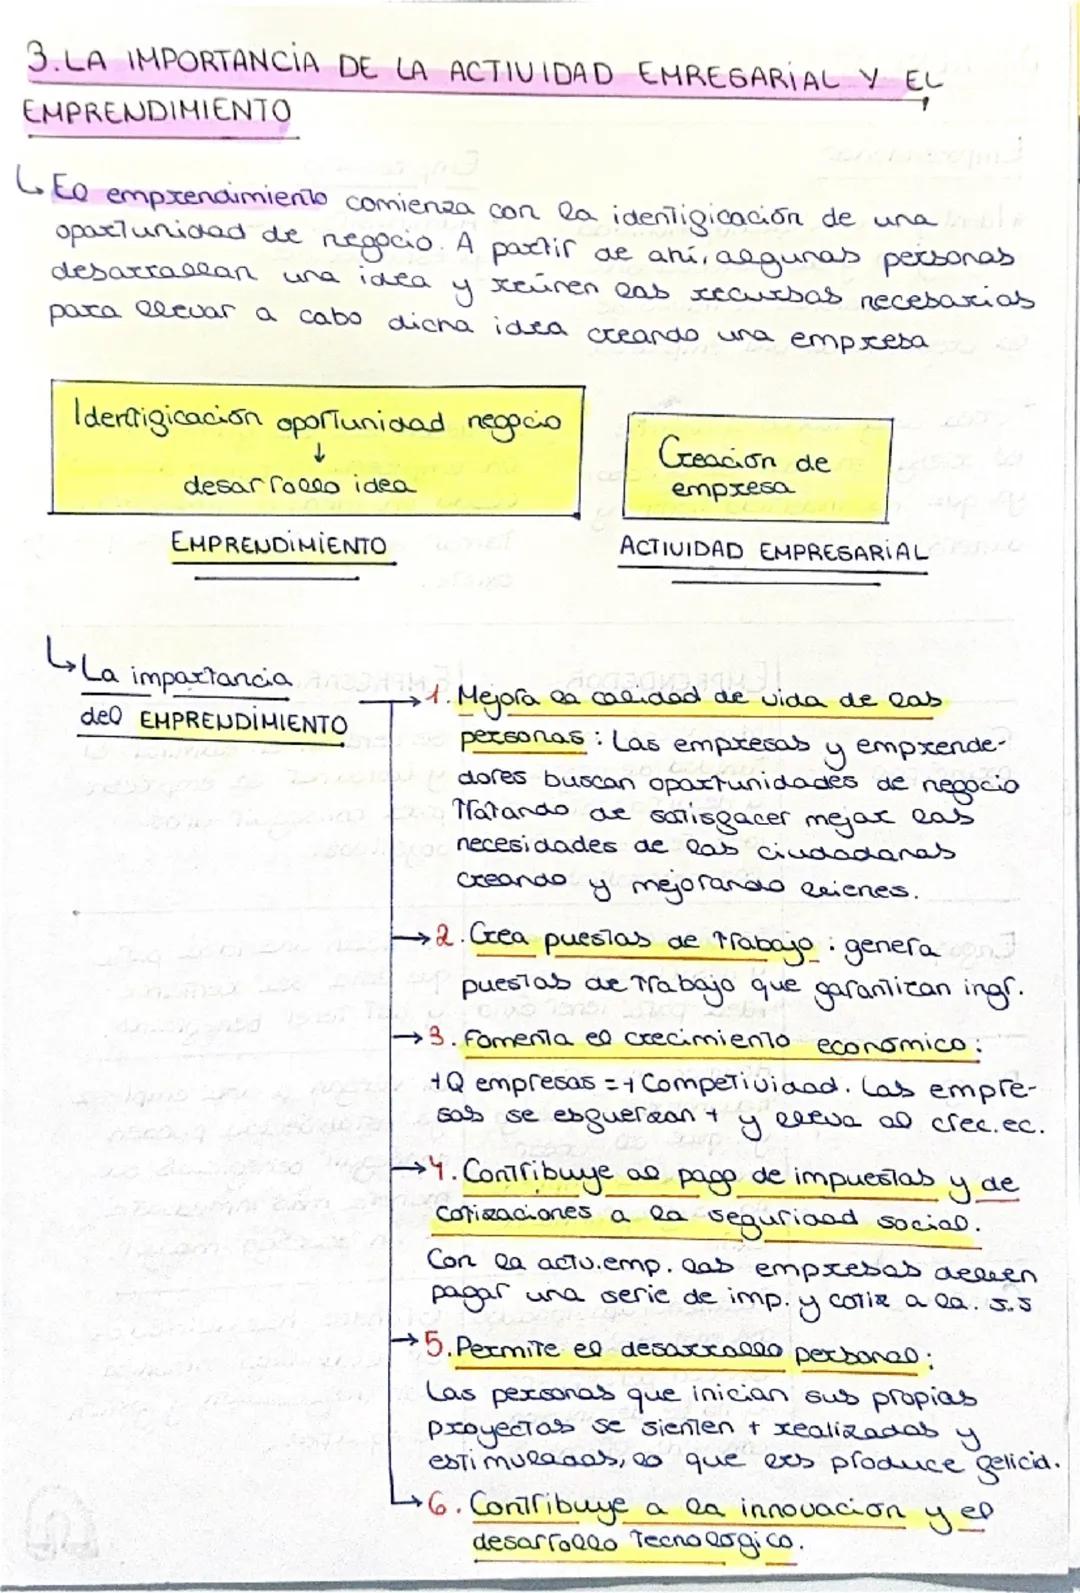 3. LA IMPORTANCIA DE LA ACTIVIDAD EMRESARIAL Y EL
EMPRENDIMIENTO
↳ El emprendimiento comienza con la identificación de una
oportunidad de negocio. A partir de ahí, algunas personas
desarrollan una idea y reúnen los recursos necesarios
para llevar a cabo dicha idea creando una empresa
Identificación oportunidad negocio
↓
desarrollo idea
Creación de
empresa
EMPRENDIMIENTO
ACTIVIDAD EMPRESARIAL
↳ La importancia
del EMPRENDIMIENTO
→ 1. Mejora la calidad de vida de las
personas: Las empresas y emprende-
dores buscan oportunidades de negocio
tratando de satisfacer mejor las
necesidades de los ciudadanos
creando y mejorando bienes.
→ 2. Crea puestos de trabajo: genera
puestos de trabajo que garantizan ingr.
→ 3. Fomenta el crecimiento económico:
+Q empresas = + Competividad. Las empre-
sas se esfuerzan + y lleva al crec. ec.
→ 4. Contribuye al pago de impuestos y de
cotizaciones a la seguridad social.
Con la actv. emp. las empresas deben
pagar una serie de imp. y cotiz a la. s.s
→ 5. Permite el desarrollo personal:
Las personas que inician sus propios
proyectos se sienten + realizados y
estimulados, lo que les produce felicid.
↳ 6. Contribuye a la innovación y el
desarrollo tecnológico.